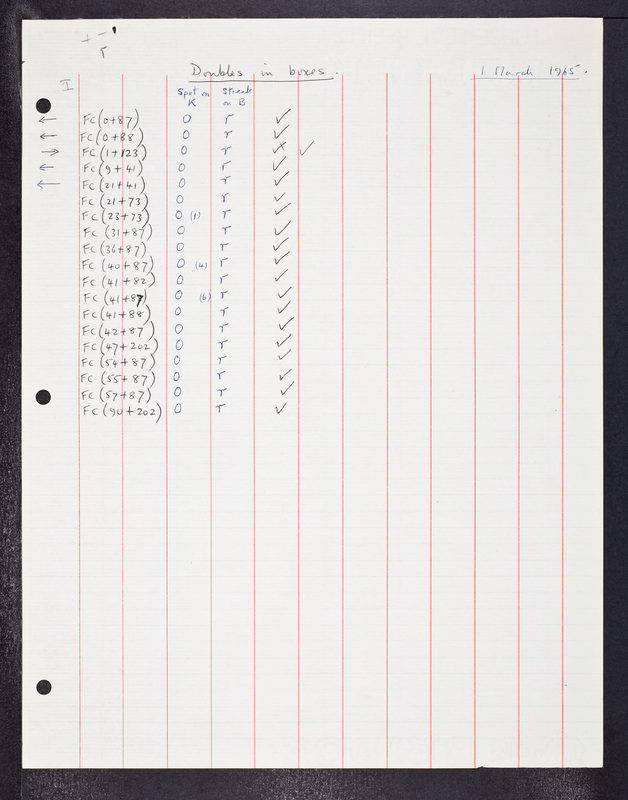 + -
r
Doubles in boxes.
1 March 1965.
I
Spot on K
Streak on B
← FC(0+87) 0 r ✓
← FC(0+88) 0 r ✓
→ FC(1+123) 0 r ✗ ✓
← FC(9+41) 0 r ✓
← FC(21+41) 0 r ✓
FC(21+73) 0 r ✓
FC(23+73) 0 (1) r ✓
FC(31+87) 0 r ✓
FC(36+87) 0 r ✓
FC(40+87) 0 (4) r ✓
FC(41+82) 0 r ✓
FC(41+87) 0 (6) r ✓
FC(41+88) 0 r ✓
FC(42+87) 0 r ✓
FC(47+202) 0 r ✓
FC(54+87) 0 r ✓
FC(55+87) 0 r ✓
FC(57+87) 0 r ✓
FC(90+202) 0 r ✓